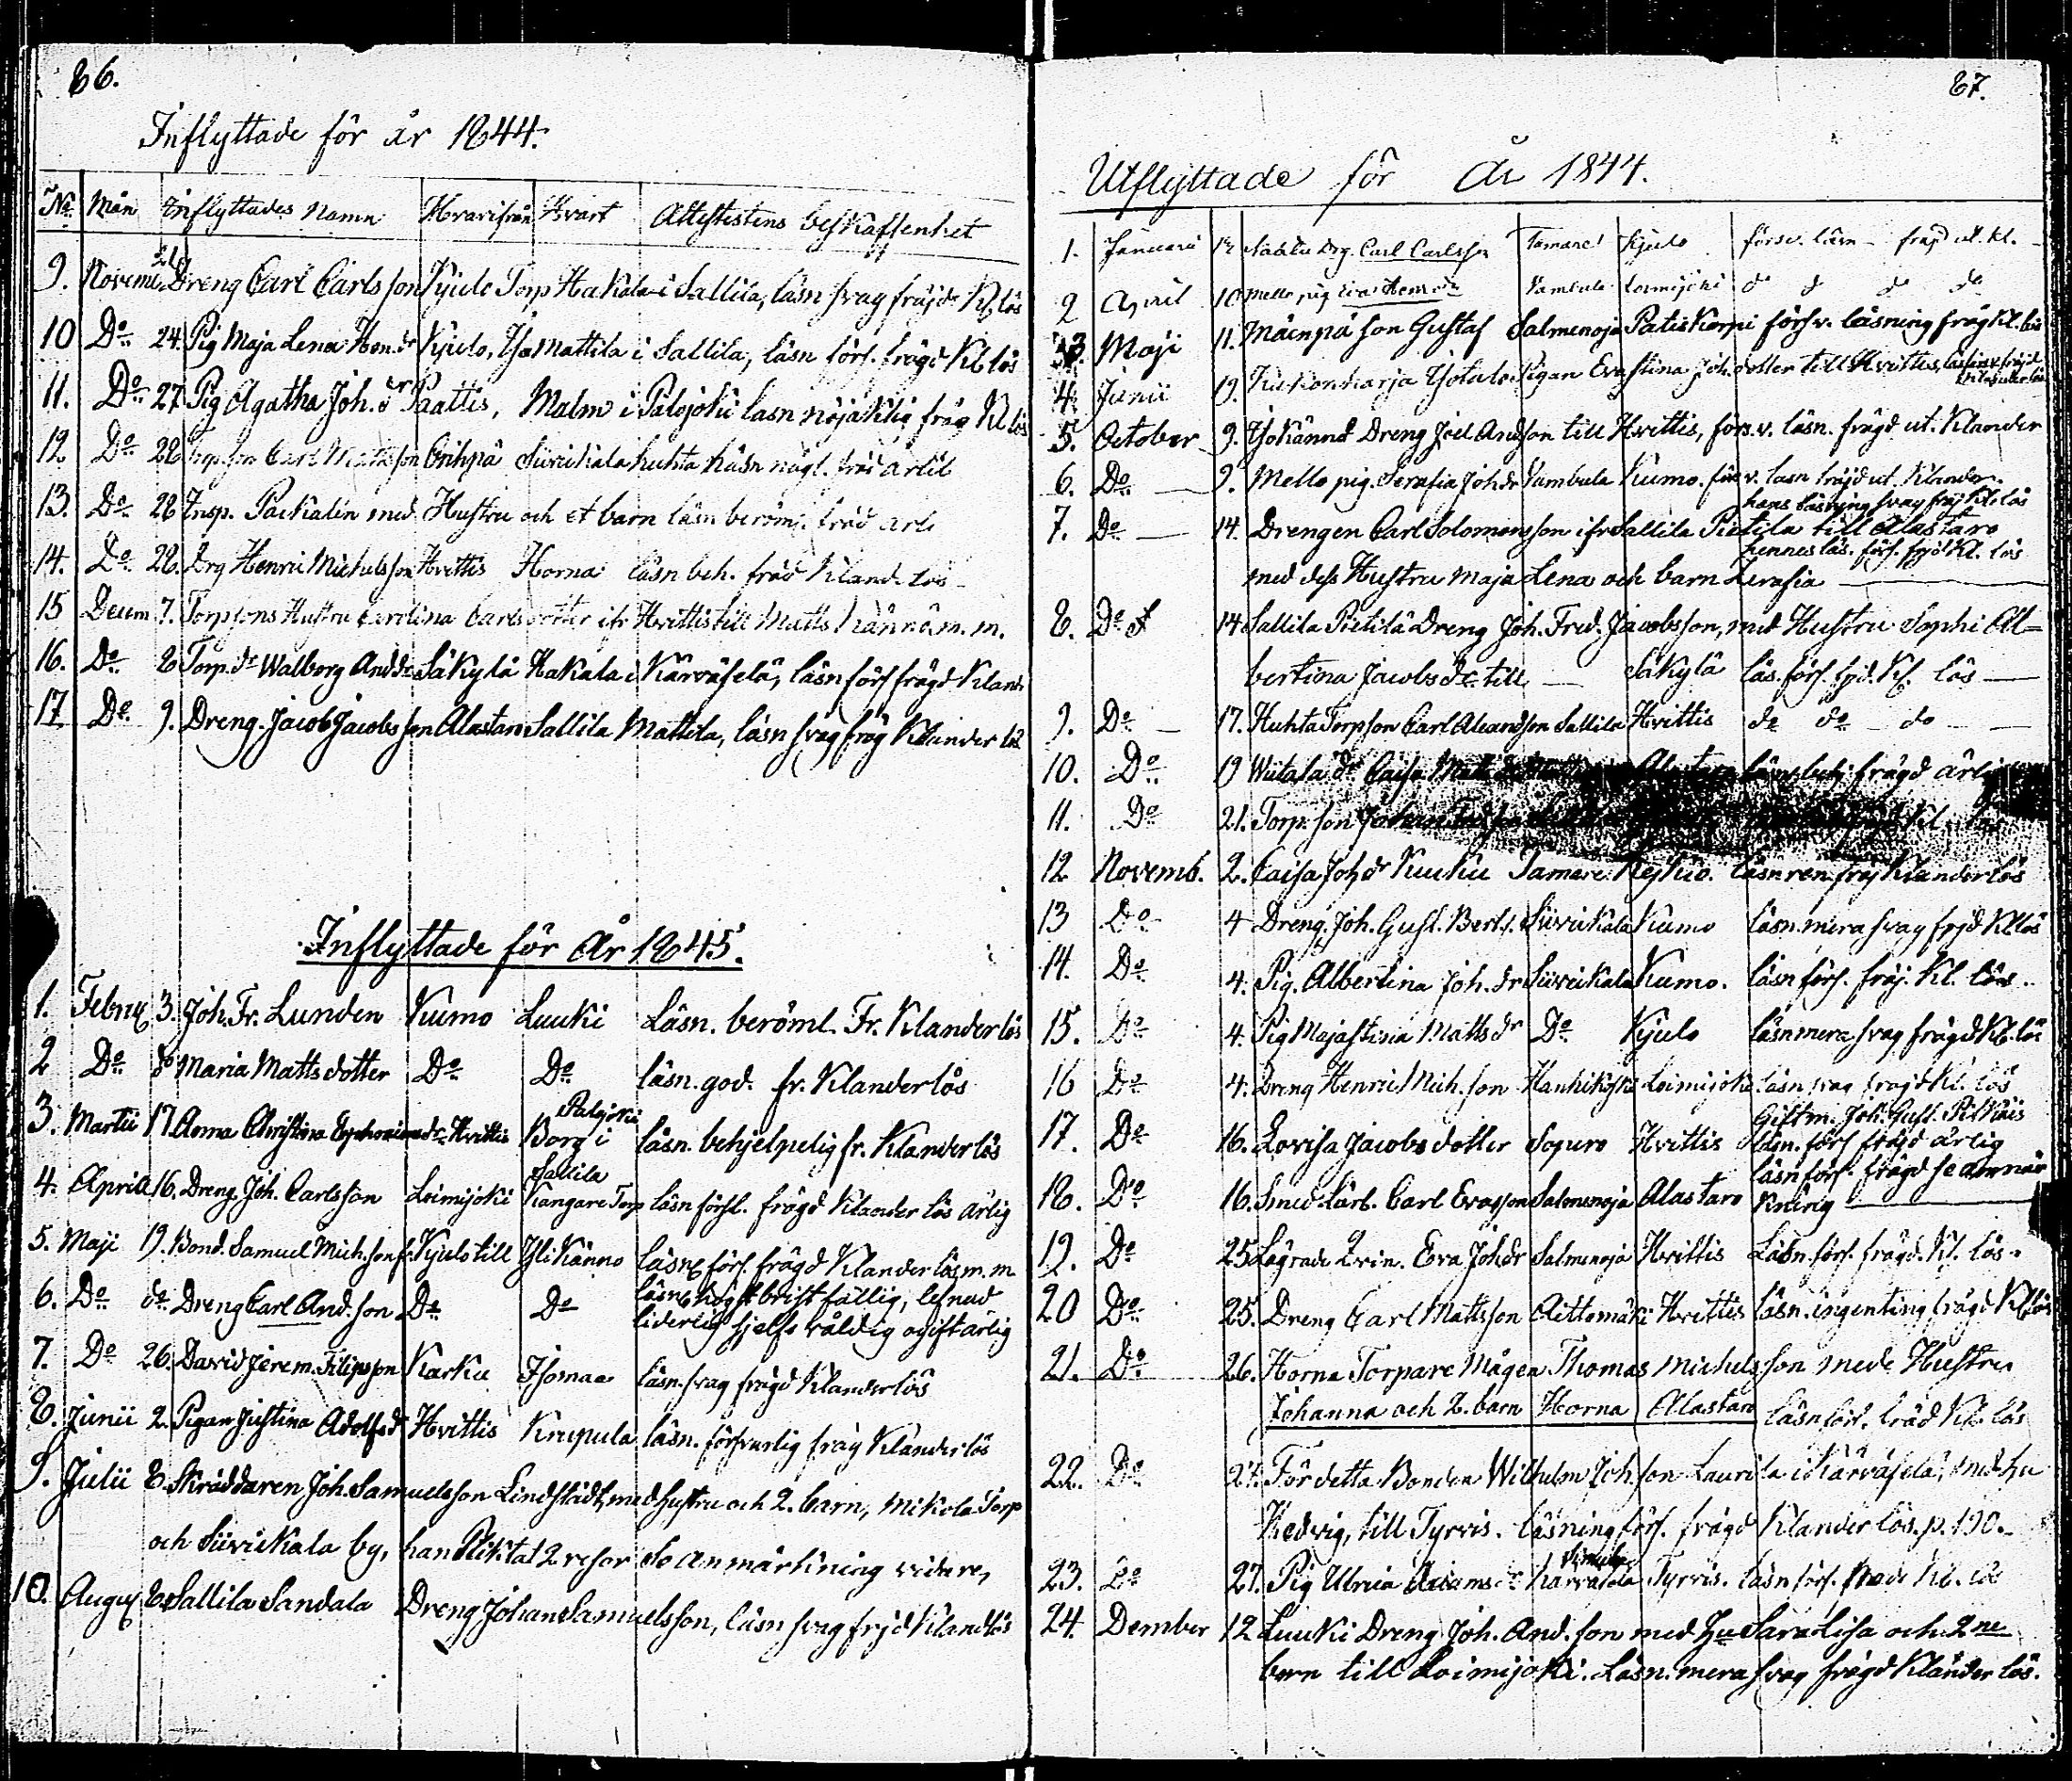 86.
Inflyttade för år 1844.
No Mån Inflyttades Namn Hvarifrån Hvart Attestens beskaffenhet
9. Novemb. Dreng Carl Carlsson Kjulo Torp Hakala i Sallila, läsn svag fräjd Kl. lös
10 Do 24. Pig Maja Lena Hen.dr Kjulo, Mattila i Sallila, läsn förs. frägd Kl lös
11. Do 27 Pig Agatha Joh.dr Paattis, Malm i Palojoki läsn nöjaktig fräg Kl lös
12 Do 28 Carl son Siivikala huhta läsn fräd ärlil
13. Do 28 Insp. Packalin med Hustru och et barn läsn beröml. fräd ärli
14. Do 28. Drg Henric Michelsson Hvittis Horna läsn beh. fräd Kland. lös
15 Decem 7. Torpsons Hustru Carolina Carlsdotter ifr Hvittis till Matts Kännö m. m.
16. Do 8 Torp. dr Walborg And.dr Säkylä Hakala i Kärväselä, läsn förs frägd Kland
17 Do 9. Dreng. Jacob Jacobsson Alastaro Sallila Mattila, läsn svag fräg Klander lös
Inflyttade för År 1845.
1. Febru 3. Joh. Fr. Lunden Kumo Luuki Läsn. beröml. Fr. Klanderlös
2 Do do Maria Matts dotter Do Do läsn. god. fr. Klanderlös
Palojoki
3. Martii 17. Anna Christina Hvittis Borg i läsn. behjelpelig fr. Klanderlös
Sallila
4. April 16. Dreng Joh. Carlsson Loimijoki Kangare Torp läsn försl. frägd Klander lös ärlig
5. Maji 19. Bond. Samuel Mich.son fr. Kjulo till Yli Känno läsn förs. frägd Klanderlös m. m
6. Do do Dreng Carl And.son Do Do läsn högst brist fällig, lefnad
liderlig sjelfs våldig ogift ärlig
7. Do 26. David Jerem. Filipsson Karku Isomaa läsn. svag frägd Klanderlös
8. Junii 2. Pigan Justina Adolfsdr Hvittis Krupula läsn. försvarlig fräg Klanderlös
9. Julii 8. Skräddaren Joh. Samuelsson Lindstädt, med hustru och 2. barn, Mikola Torp
och Siivikala by, han Pliktat 2 resor Se anmärkning vidare,
10. Augus 8. Sallila Sandala Dreng Johan Samuelsson, läsn svag fräjd Klandlös
87.
Utflyttade för År 1844.
1. Januari Drg. Carl Carlsson Tamare Kjulo försv. läsn frägd ut. kl.
2 April 10 Mello pig Vambula Loimijoki do do do do
3. Maji 11. Mäenpä son Gustaf Salmenoja Patiskorpi försv. läsning fräg Kl. lös
4. Junii 19. Pigan Eva Stina Joh. dotter till Hvittis,
5. October 9. Dreng Joel Andson till Hvittis, förs.v. läsn. frägd ut. Klander
6. Do 9. Mello pig. Serafia Joh.dr Vambula Kumo. förs v. läsn fräjd ut. Klander.
hans läsning svag fräj Kl. lös
7. Do 14. Drengen Carl Solomonsson ifr Sallila Pietila till Alastaro
hennes läs. förs. frjd Kl. lös
med dess Hustru Maja Lena och barn Serafia
8. Do 14. Sallila Pietilä Dreng Joh. Fred. Jacobsson, med Hustru Sophi Al-
bertina Jacobs dr. till Säkylä läs. förs. fjd. Kl. lös
9. Do 17. Huhta Torpson Carl Alexandson Sallila Hvittis do do do
10. Do 19 Wiitala dr Caisa Alastaro läsn behj. frägd ärlig
11. Do 21. Torp. son
12 Novemb. 2. Caisa Johdr Kuuku Tamare läsn ren fräj Klanderlös
13 Do 4 Dreng. Joh. Gust. Siivikala Kumo läsn. mera svag frjd Kl lös
14. Do 4. Pig. Albertina Joh. dr Siivikala Kumo. läsn förs. fräj. Kl. lös
15. Do 4. Pig Majastina Matts dr Do Kjulo läsn mera svag frägd Kl. lös
16 Do 4. Dreng Henric Mich. son Loimijoki läsn svag frajd Kl. lös
Gift m. Joh. Gust.
17. Do 16. Lovisa Jacobs dotter Sopuro Hvittis läsn. förs frägd ärlig
läsn förs. frägd se anmär
18. Do 16. Smed Lärl. Carl Evasson Salmenoja Alastaro Kning
19. Do 25. Lägrade Qvin. Eva Joh.dr Salmenoja Hvittis Läsn. förs. frägd. Kl. lös.
20 Do 25. Dreng Carl Mattsson Aittomäki Hvittis läsn. ingenting frägd Kl lös
21. Do 26. Horna Torpare Mågen Thomas Michelsson med Hustru
Johanna och 2. barn Horna Alastaro läsn förs. fräd Kl. lös
22. Do 27. För detta Bonden Wilhelm Joh. son Laurila i Kärväselä, med hu
Hedvig, till Tyrvis. läsning förs. frägd Klander lös. p. 190.
23. Do 27. Pig Ulrica Adams dr Kärväselä Tyrvis. läsn förs. Kl. lös
24. Dember 12 Luuki Dreng Joh. And. son med Hu Sara Lisa och 2ne
barn till Loimijoki. Läsn. mera svag frägd Klander lös.